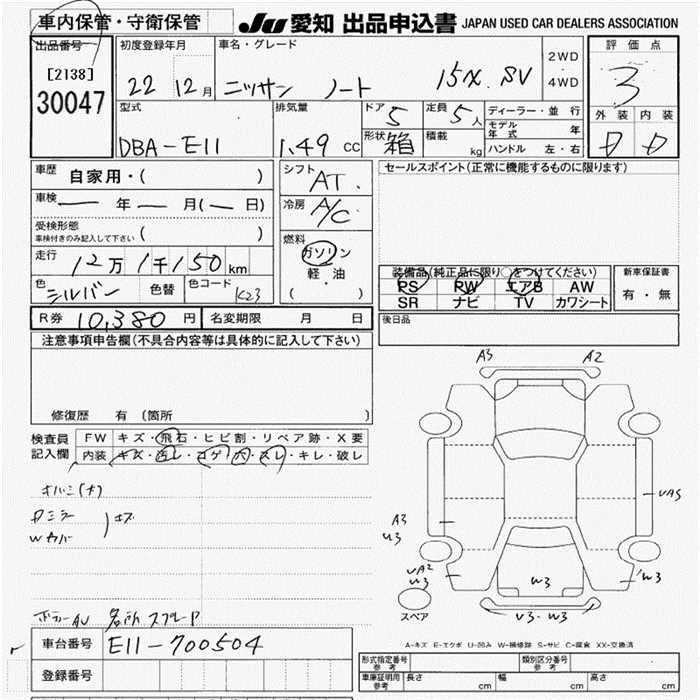 車内保管・守衛保管
JU 愛知 出品申込書 JAPAN USED CAR DEALERS ASSOCIATION
出品番号
[2138]
30047
初度登録年月
22 12月
車名・グレード
ニッサン ノート 15X SV
2WD
4WD
評価点
3
外装 内装
D D
型式
DBA-E11
排気量
1.49 CC
ドア 5
形状 箱
定員 5人
積載 kg
ディーラー・並行
モデル年式 年
ハンドル 左・右
車歴 自家用・( )
車検 ー 年 ー 月(ー 日)
受検形態
車検付きのみ記入して下さい ( )
走行 12万1千150km
色 シルバー 色替 色コード K23
シフト AT
冷房 A/C
燃料
ガソリン
軽・油
( )
セールスポイント(正常に機能するものに限ります)
装備品(純正品に限り○をつけてください)
PS PW エアB AW
SR ナビ TV カワシート
新車保証書
有・無
R券 10,380円 名変期限 月 日
後日品
注意事項申告欄(不具合内容等は具体的に記入して下さい)
修復歴 有(箇所
検査員記入欄
FW キズ・飛石・ヒビ割・リペア跡・X要
内装 キズ・汚レ・コゲ・穴・スレ・キレ・破レ
キズ
A3 A2
A3
U3
UA2
W3
UA5
W3
W3
V3・W3
スペア
A-キズ E-エクボ U-凹み W-補修跡 S-サビ C-腐食 XX-交換済
車台番号 E11-700504
登録番号
形式指定番号 参考
類別区分番号 参考
車庫証明用 参考 長さ cm 幅 cm 高さ cm